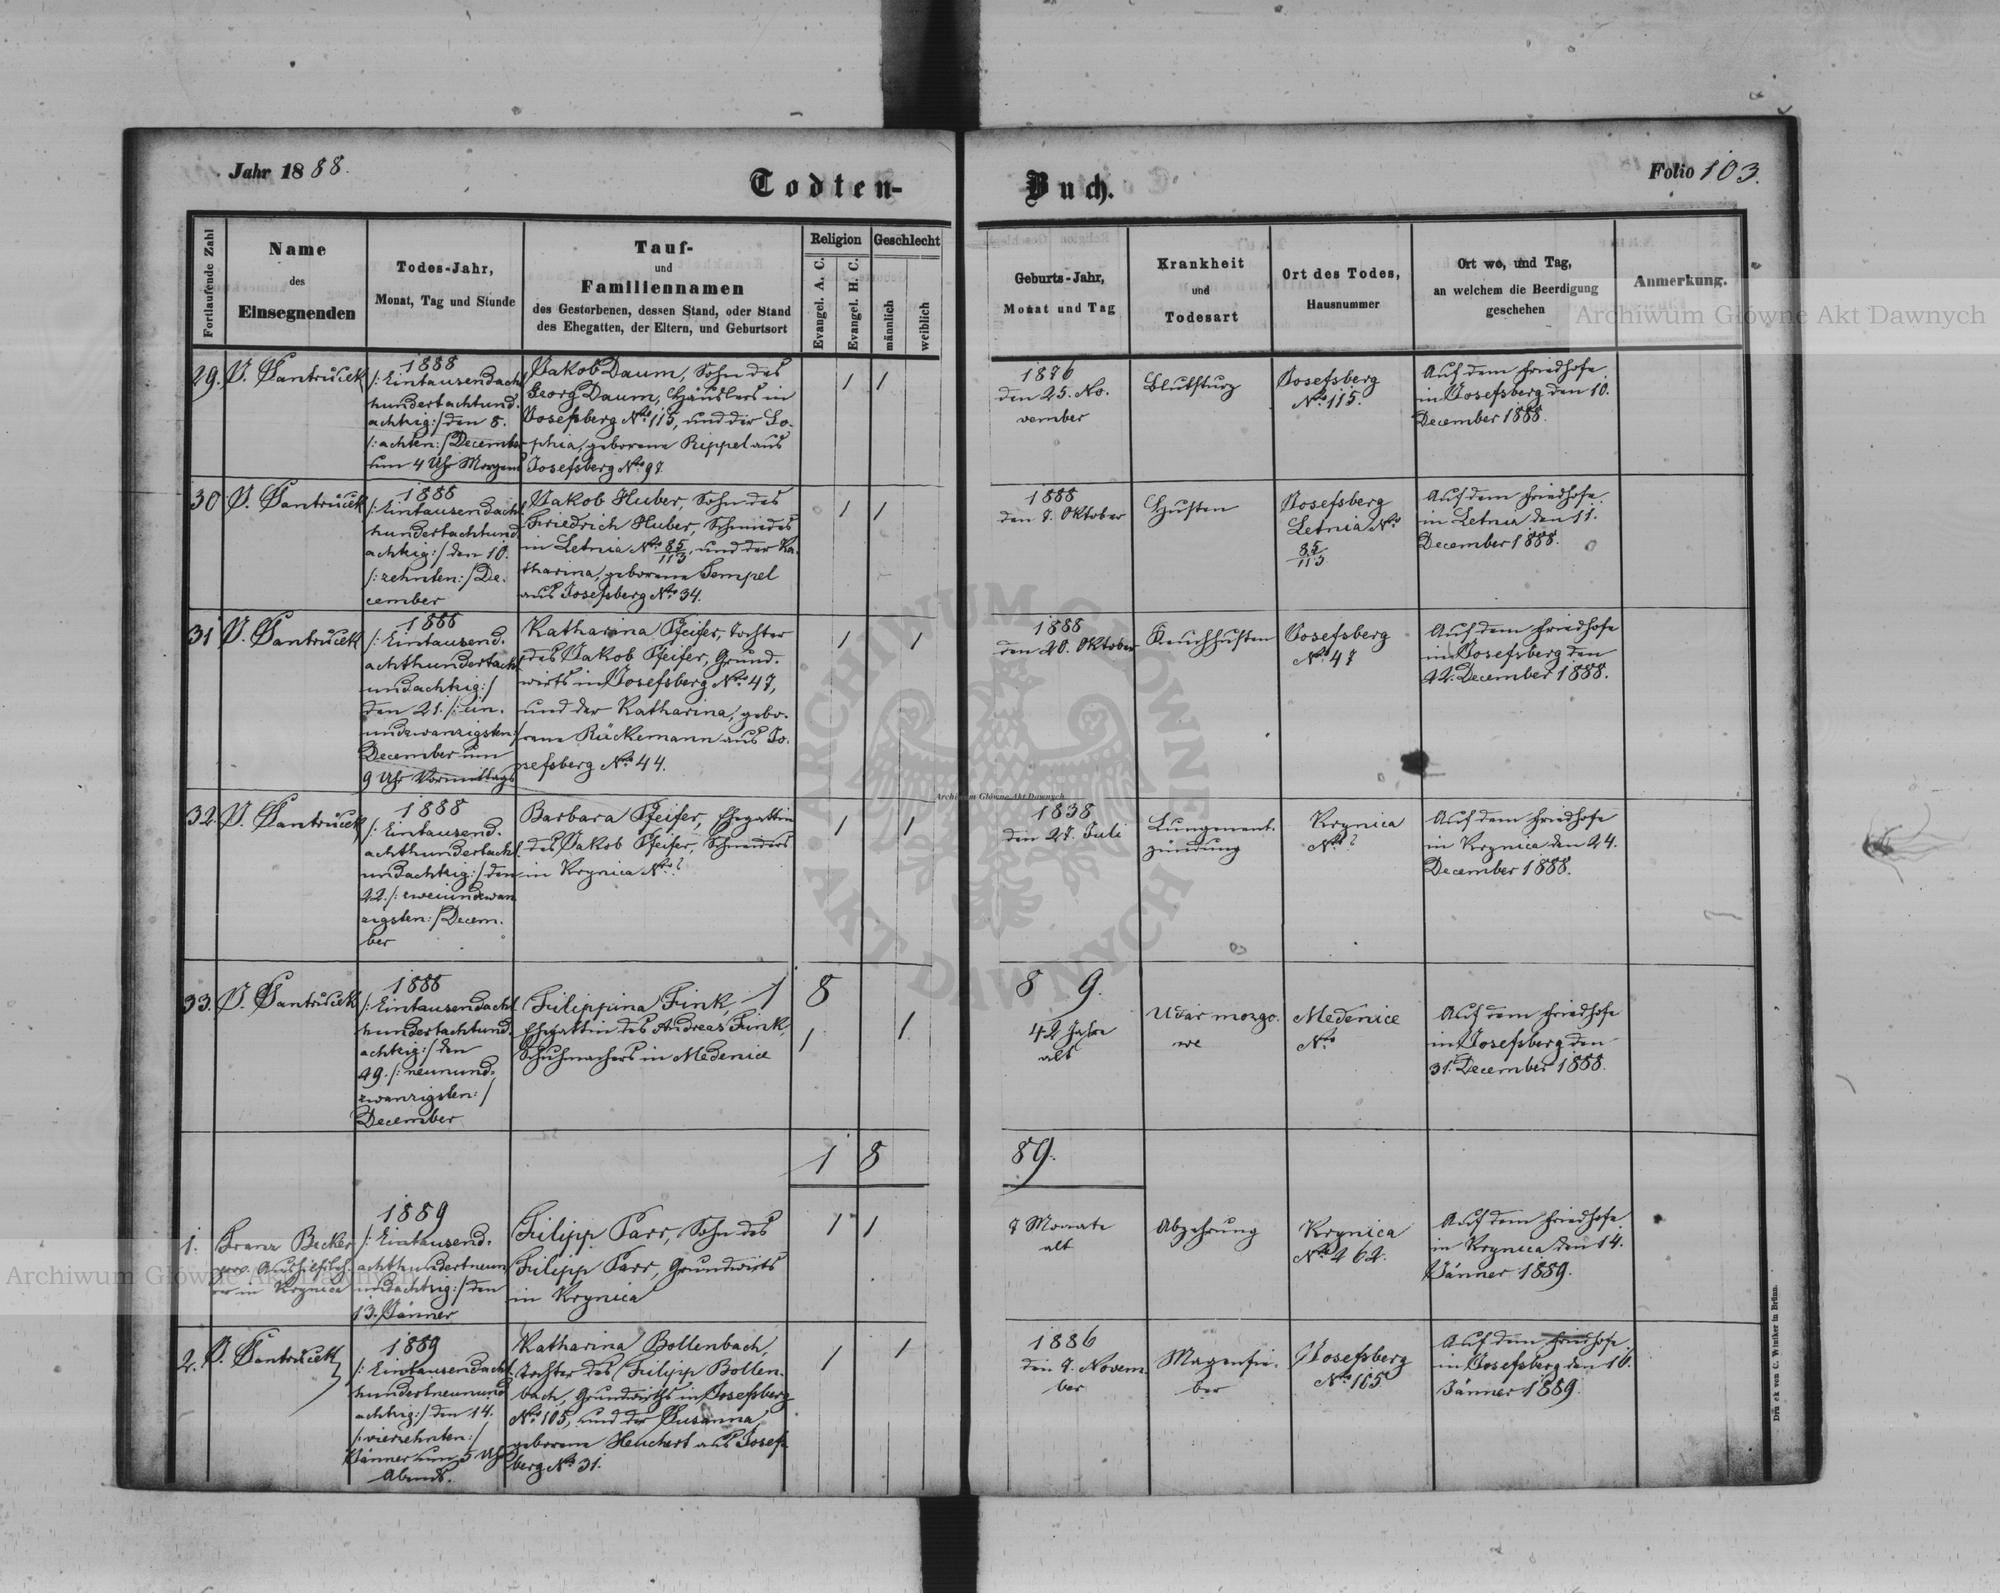 Jahr 1888.
Todten-
Buch.
Folio 103.
Fortlaufende Zahl
Name
des
Einsegnenden
Todes-Jahr,
Monat, Tag und Stunde
Tauf-
und
Familiennamen
des Gestorbenen, dessen Stand, oder Stand
des Ehegatten, der Eltern, und Geburtsort
Religion
Evangel. A. C.
Evangel. H. C.
Geschlecht
männlich
weiblich
Geburts-Jahr,
Monat und Tag
Krankheit
und
Todesart
Ort des Todes,
Hausnummer
Ort wo, und Tag,
an welchem die Beerdigung
geschehen
Anmerkung.
29.
J. Santruček
1888
/: Eintausendacht
hundertachtund.
achtzig :/ den 8.
/: achten :/ December
um 4 Uhr Morgens
Jakob Daum, Sohn des
Georg Daum, Häuslers in
Josefsberg No 115, und der So-
phia, geborene Rippel aus
Josefsberg No 97.
1
1
1876
den 25. No.
vember
Blutsturz
Josefsberg
No 115.
Auf dem Friedhofe
in Josefsberg den 10.
December 1888.
30
J. Santruček
1888
/: Eintausendacht
hundertachtund
achtzig :/ den 10.
/: zehnten :/ De.
cember
Jakob Huber, Sohn des
Friedrich Huber, Schmiedes
in Letnia No 85/113, und der Ka-
tharina, geborene Tempel
aus Josefsberg No 34.
1
1
1888
den 7. Oktober
Husten
Josefsberg
Letnia No
85/113
Auf dem Friedhofe
in Letnia den 11.
December 1888.
31
J. Santruček
1888
/: Eintausend.
achthundertacht
undachtzig :/
den 21. /: ein.
undzwanzigsten :/
December um
9 Uhr Vormittags
Katharina Pfeifer, Tochter
des Jakob Pfeifer, Grund.
wirts in Josefsberg No 47,
und der Katharina, gebo-
rene Rückemann aus Jo.
sefsberg No 44.
1
1
1888
den 20. Oktober
Keuchhusten
Josefsberg
No 47
Auf dem Friedhofe
in Josefsberg den
22. December 1888.
32.
J. Santruček
1888
/: Eintausend.
achthundertacht
undachtzig :/ den
22. /: zweiundzwan
zigsten :/ Decem.
ber
Barbara Pfeifer, Ehegattin
des Jakob Pfeifer, Schneiders
in Krynica No ?
1
1
1838
den 27. Juli
Lungenent.
zündung
Krynica
No ?
Auf dem Friedhofe
in Krynica den 24.
December 1888.
33.
J. Santruček
1888
/: Eintausendacht
hundertachtund.
achtzig :/ den
29. /: neunund.
zwanzigsten :/
December
Filippina Fink,
Ehegattin des Andreas Fink,
Schuhmachers in Medenice
1 8
8 9.
1
1
42 Jahre
alt
Udar mózgo.
we
Medenice
No
Auf dem Friedhofe
in Josefsberg den
31. December 1888.
1 8
89.
1.
Franz Becker
in Krynica
1889
/: Eintausend.
achthundertneun
undachtzig :/ den
13. Jänner
Filipp Parr, Sohn des
Filipp Parr, Grundwirts
in Krynica
1
1
7 Monate
alt
Abzehrung
Krynica
No 262.
Auf dem Friedhofe
in Krynica den 14.
Jänner 1889.
2.
J. Santruček
1889
/: Eintausendacht
hundertneunund
achtzig :/ den 14.
/: vierzehnten :/
Jänner um 5 Uhr
Abends.
Katharina Bollenbach,
Tochter des Filipp Bollen.
bach, Grundwirths in Josefsberg
No 105, und der Susanna,
geborene Heuchert aus Josefs
berg No 31.
1
1
1886
den 7. Novem
ber
Magenfie.
ber
Josefsberg
No 105
Auf dem Friedhofe
in Josefsberg den 16.
Jänner 1889.
Druck von C. Winiker in Brünn.
Archiwum Główne Akt Dawnych
Archiwum Główne Akt Dawnych
Archiwum Główne Akt Dawnych
ARCHIWUM GŁÓWNE
AKT DAWNYCH